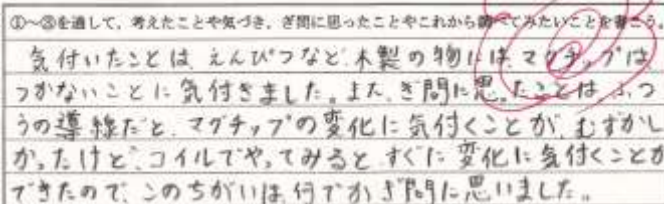 ①～③を通して、考えたことや気づき、ぎ問に思ったことやこれから調べてみたいことを書こう
気付いたことは、えんぴつなど、木製の物には、マグチップは
つかないことに気付きました。また、ぎ問に思ったことは、ふつ
うの導線だと、マグチップの変化に気付くことが、むずかし
かったけど、コイルでやってみると、すぐに変化に気付くことが
できたので、このちがいは、何でかぎ問に思いました。